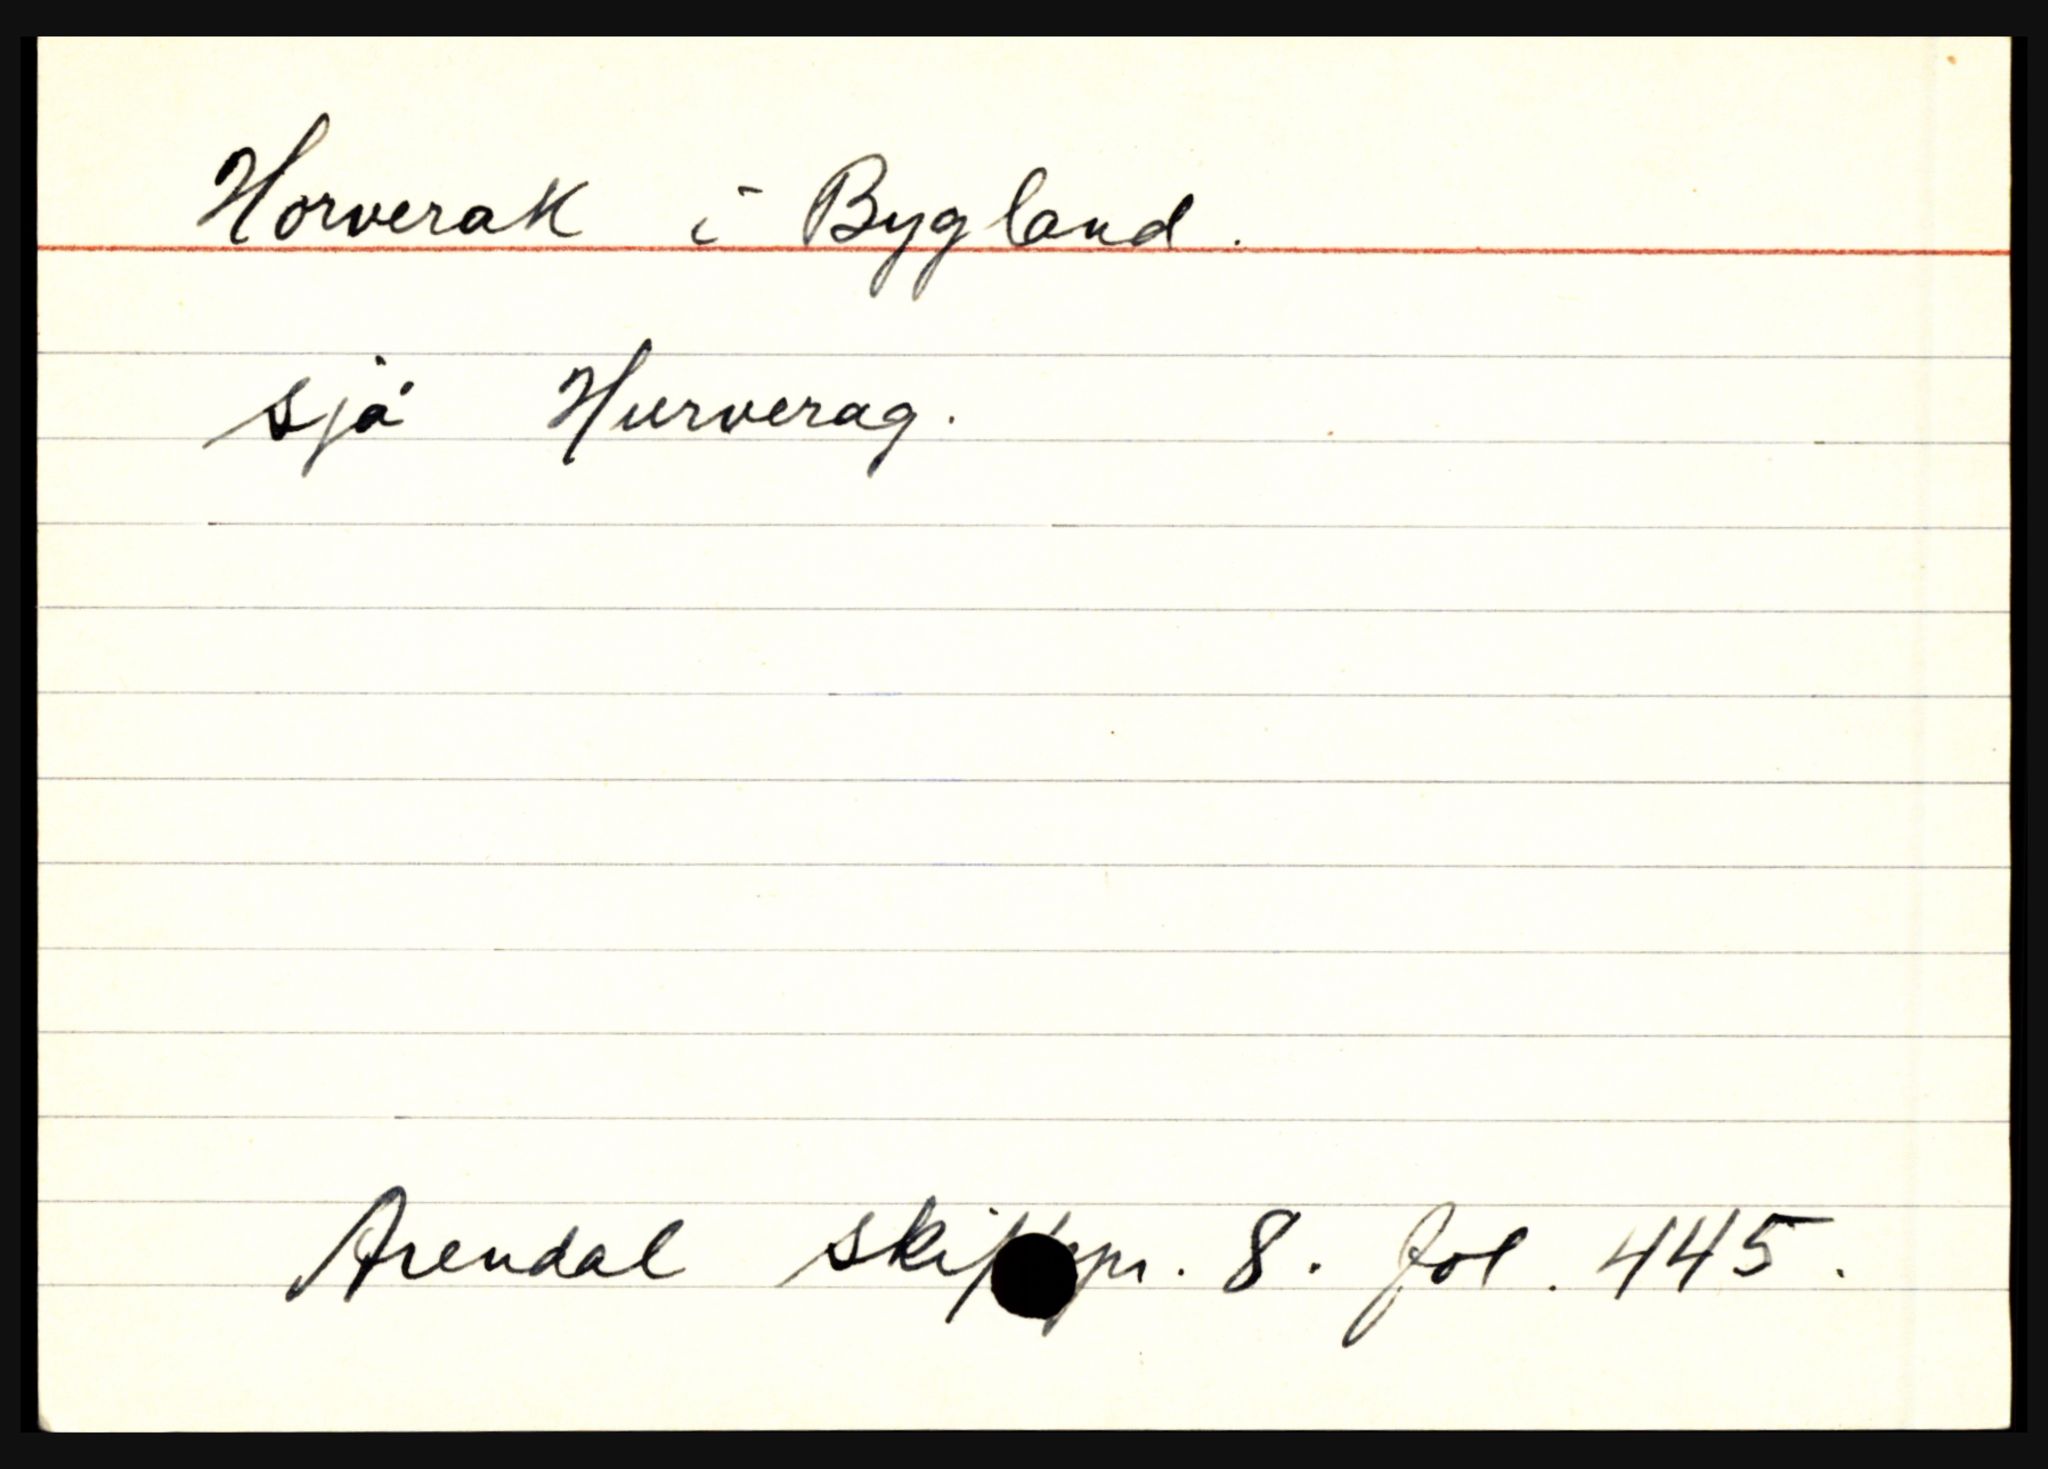 Horverak i Bygland.
sjå Hurverag.
Arendal 8. fol. 445.